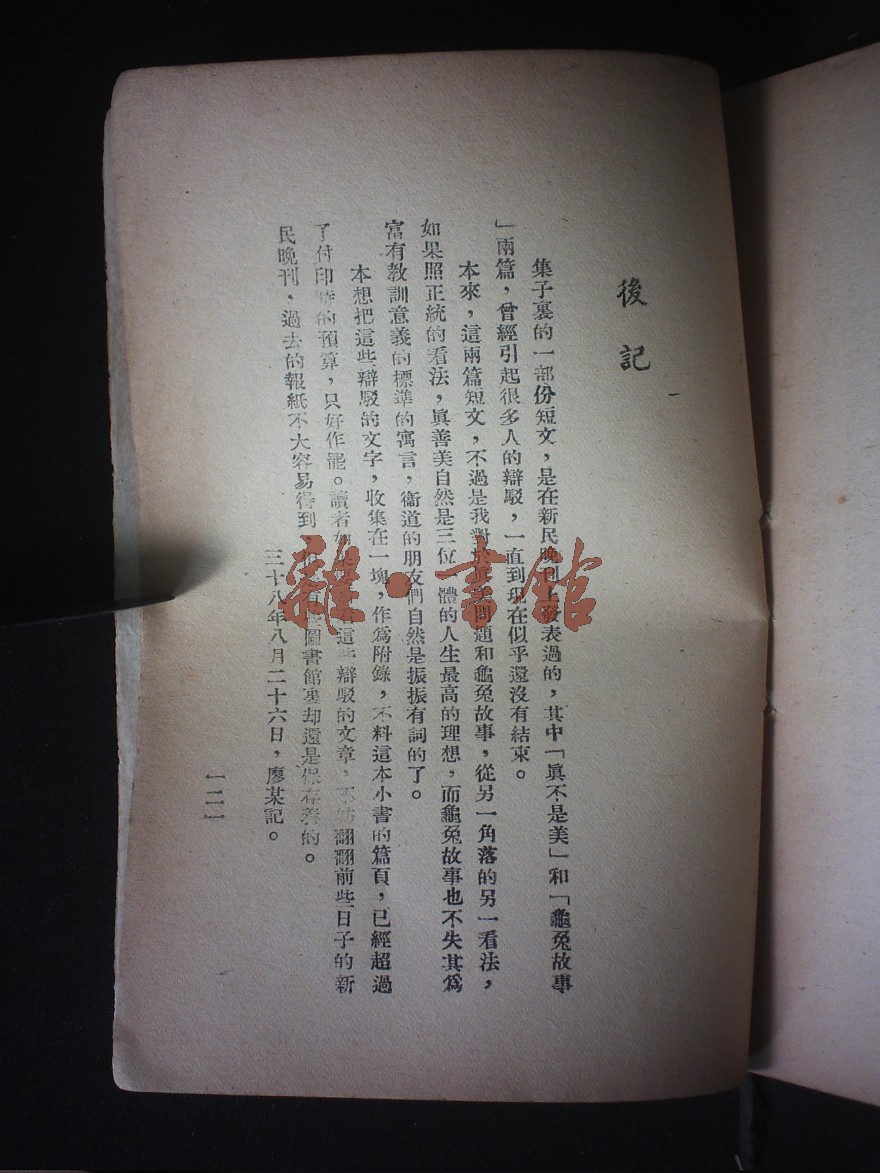 後記
集子裏的一部份短文，是在新民晚刊上發表過的，其中「眞不是美」和「龜兔故事
」兩篇，曾經引起很多人的辯駁，一直到現在似乎還沒有結束。
本來，這兩篇短文，不過是我對於眞美問題和龜兔故事，從另一角落的另一看法，
如果照正統的看法，眞善美自然是三位一體的人生最高的理想，而龜兔故事也不失其爲
富有教訓意義的標準的寓言，衞道的朋友們自然是振振有詞的了。
本想把這些辯駁的文字，收集在一塊，作爲附錄，不料這本小書的篇頁，已經超過
了付印時的預算，只好作罷。讀者如果 這些辯駁的文章，不妨翻翻前些日子的新
民晚刊，過去的報紙不大容易得到 有些圖書館裏却還是保存着的。
三十八年八月二十六日，廖某記。
【二】
雜·書館